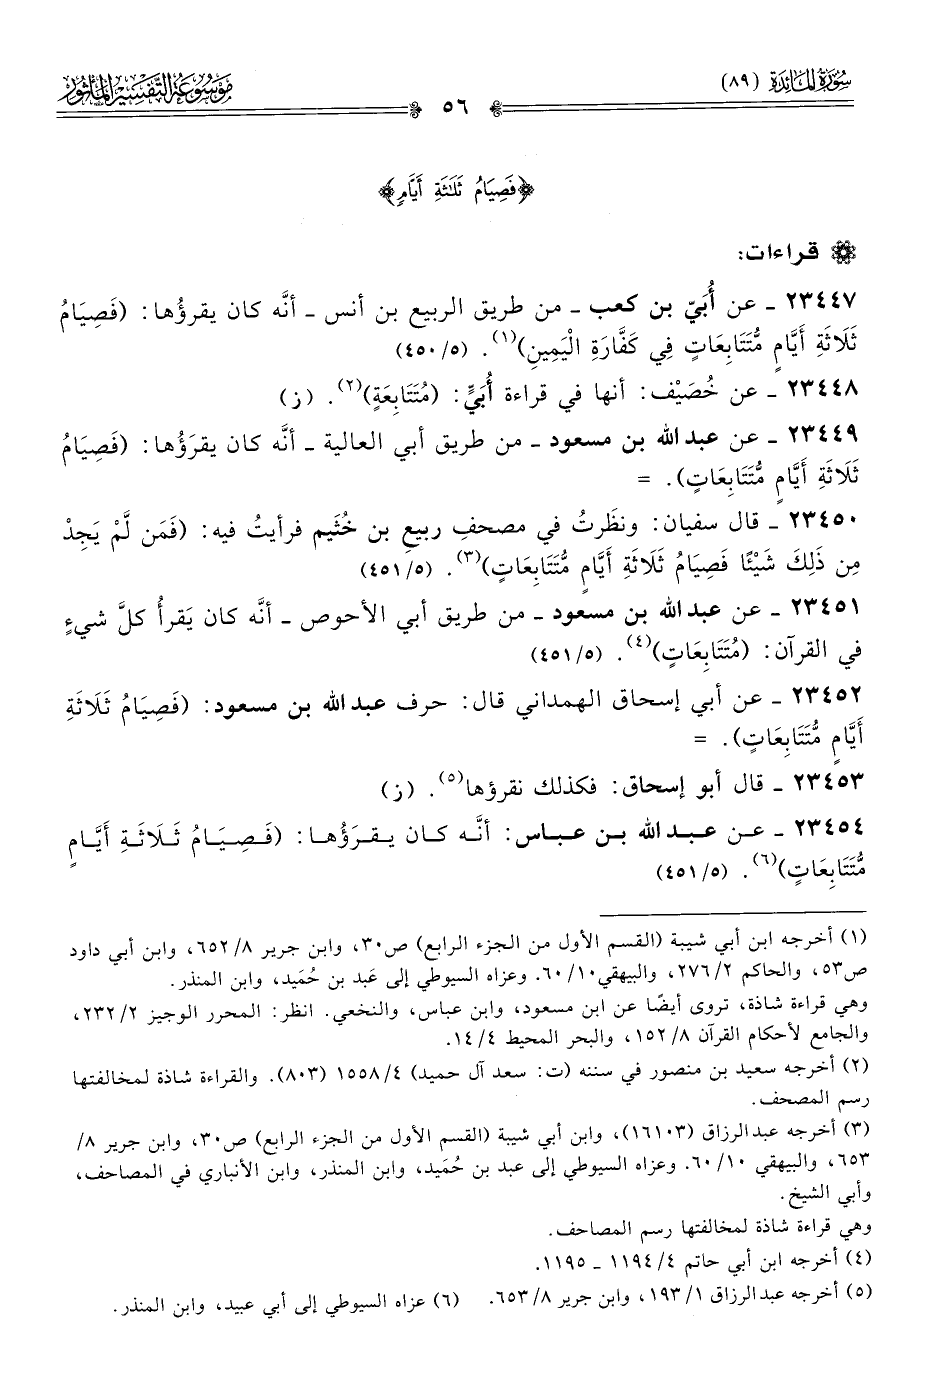 سُورَةُ المَائِدَة (٨٩)
٥٦
مَوْسُوعَةُ التَّفْسِيرِ المَأْثُورِ
﴿فَصِيَامُ ثَلَٰثَةِ أَيَّامٍ﴾
قراءات:
٢٣٤٤٧ ـ عن أُبَيّ بن كعب ـ من طريق الربيع بن أنس ـ أنَّه كان يقرؤُها: (فَصِيَامُ
ثَلَاثَةِ أَيَّامٍ مُّتَتَابِعَاتٍ فِي كَفَّارَةِ الْيَمِينِ)(١). (٤٥٠/٥)
٢٣٤٤٨ ـ عن خُصَيْف: أنها في قراءة أُبَيٍّ: (مُتَتَابِعَةٍ)(٢). (ز)
٢٣٤٤٩ ـ عن عبد الله بن مسعود ـ من طريق أبي العالية ـ أنَّه كان يقرَؤُها: (فَصِيَامُ
ثَلَاثَةِ أَيَّامٍ مُّتَتَابِعَاتٍ). =
٢٣٤٥٠ ـ قال سفيان: ونظَرتُ في مصحفِ ربيعِ بن خُثَيم فرأيتُ فيه: (فَمَن لَّمْ يَجِدْ
مِن ذَلِكَ شَيْئًا فَصِيَامُ ثَلَاثَةِ أَيَّامٍ مُّتَتَابِعَاتٍ)(٣). (٤٥١/٥)
٢٣٤٥١ ـ عن عبد الله بن مسعود ـ من طريق أبي الأحوص ـ أنَّه كان يَقرأُ كلَّ شيءٍ
في القرآن: (مُتَتَابِعَاتٍ)(٤). (٤٥١/٥)
٢٣٤٥٢ ـ عن أبي إسحاق الهمداني قال: حرف عبد الله بن مسعود: (فَصِيَامُ ثَلَاثَةِ
أَيَّامٍ مُّتَتَابِعَاتٍ). =
٢٣٤٥٣ ـ قال أبو إسحاق: فكذلك نقرؤها(٥). (ز)
٢٣٤٥٤ ـ عن عبد الله بن عباس: أنَّه كان يقرَؤُها: (فَصِيَامُ ثَلَاثَةِ أَيَّامٍ
مُّتَتَابِعَاتٍ)(٦). (٤٥١/٥)
(١) أخرجه ابن أبي شيبة (القسم الأول من الجزء الرابع) ص٣٠، وابن جرير ٨/ ٦٥٢، وابن أبي داود
ص٥٣، والحاكم ٢/ ٢٧٦، والبيهقي ١٠/ ٦٠. وعزاه السيوطي إلى عَبد بن حُمَيد، وابن المنذر.
وهي قراءة شاذة، تروى أيضًا عن ابن مسعود، وابن عباس، والنخعي. انظر: المحرر الوجيز ٢/ ٢٣٢،
والجامع لأحكام القرآن ٨/ ١٥٢، والبحر المحيط ٤/ ١٤.
(٢) أخرجه سعيد بن منصور في سننه (ت: سعد آل حميد) ٤/ ١٥٥٨ (٨٠٣). والقراءة شاذة لمخالفتها
رسم المصحف.
(٣) أخرجه عبد الرزاق (١٦١٠٣)، وابن أبي شيبة (القسم الأول من الجزء الرابع) ص٣٠، وابن جرير ٨/
٦٥٣، والبيهقي ١٠/ ٦٠. وعزاه السيوطي إلى عبد بن حُمَيد، وابن المنذر، وابن الأنباري في المصاحف،
وأبي الشيخ.
وهي قراءة شاذة لمخالفتها رسم المصاحف.
(٤) أخرجه ابن أبي حاتم ٤/ ١١٩٤ ـ ١١٩٥.
(٥) أخرجه عبد الرزاق ١/ ١٩٣، وابن جرير ٨/ ٦٥٣. (٦) عزاه السيوطي إلى أبي عبيد، وابن المنذر.